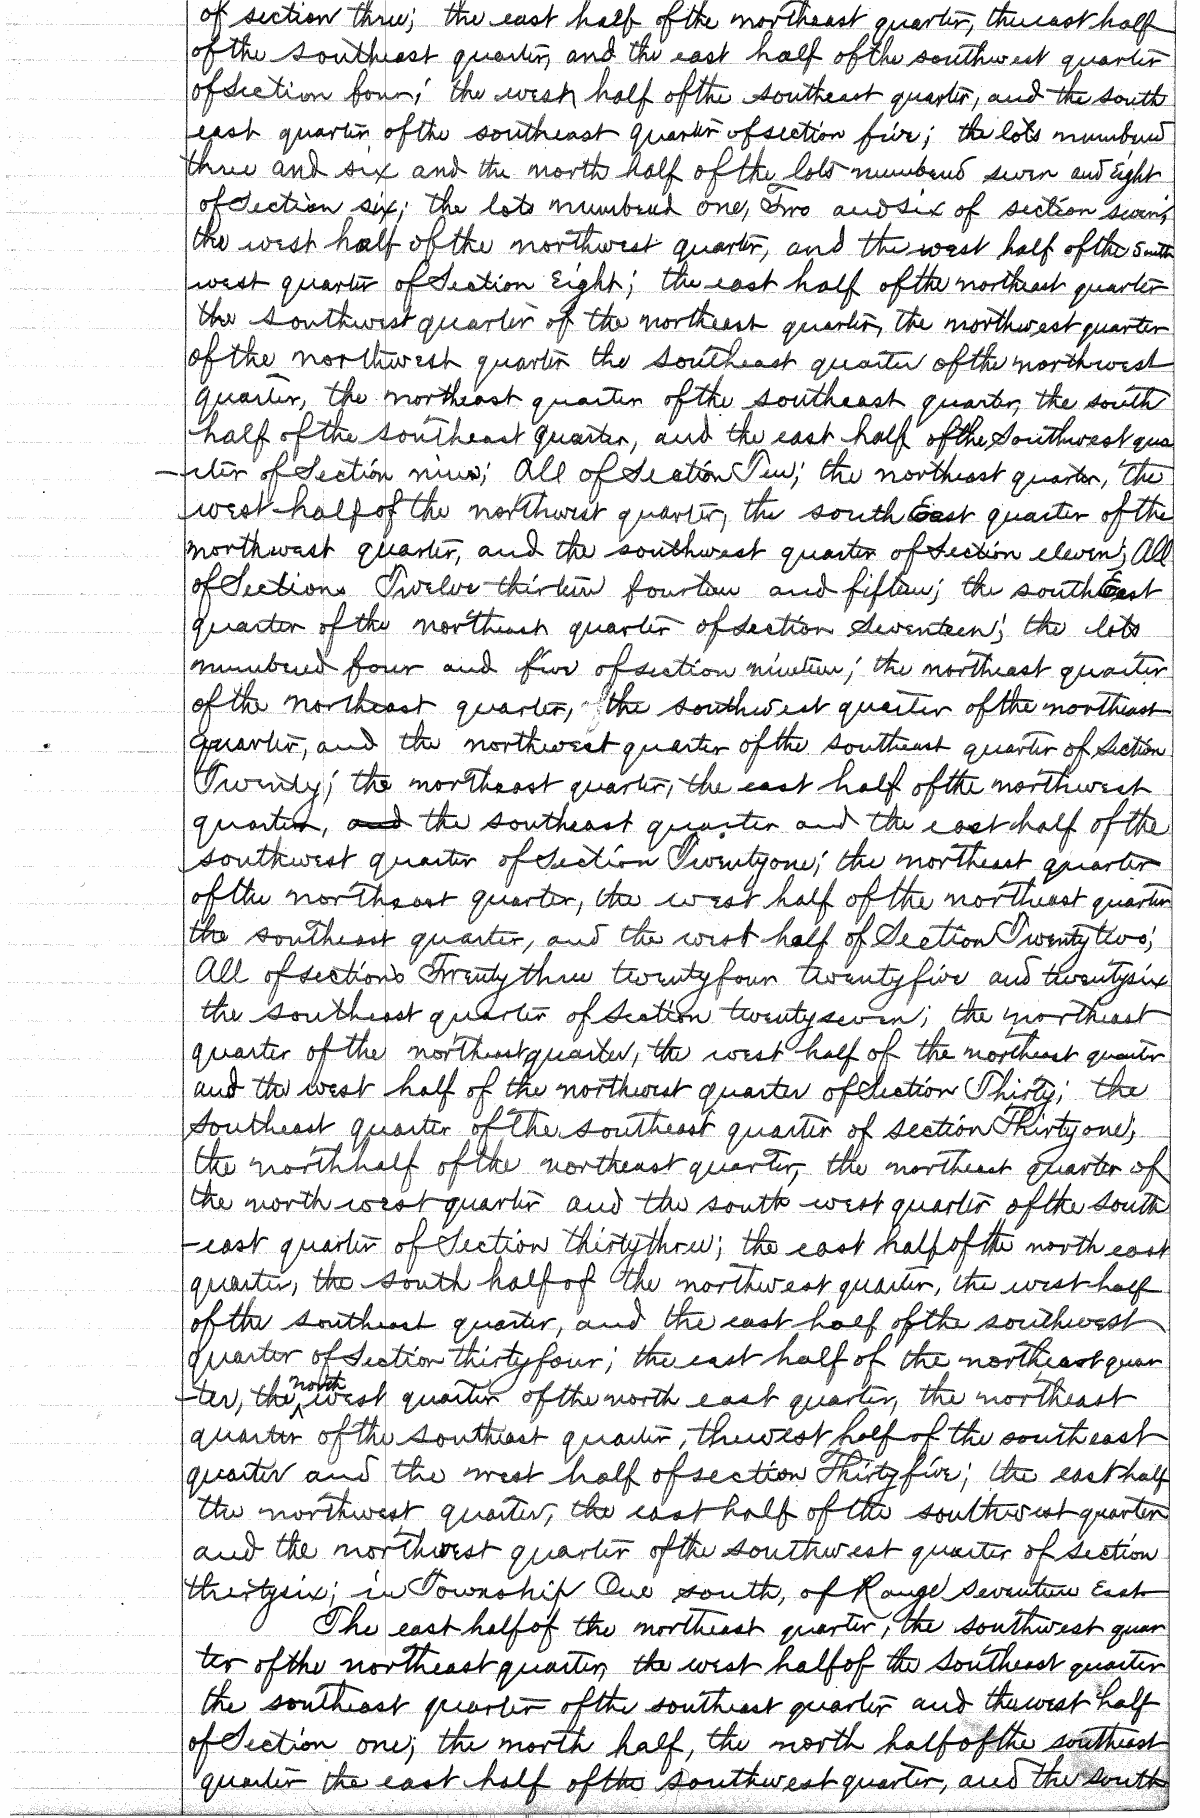 of section three; the east half of the northeast quarter, the east half
of the southeast quarter, and the east half of the southwest quarter
of section four; the west half of the southeast quarter, and the south
east quarter of the southeast quarter of section five; the lots numbered
three and six and the north half of the lots numbered seven and Eight
of Section six; the lots numbered one, Two and six of section seven;
the west half of the northwest quarter, and the west half of the South
west quarter of Section Eight; the east half of the northeast quarter
the southwest quarter of the northeast quarter, the northwest quarter
of the northwest quarter the southeast quarter of the northwest
quarter, the northeast quarter of the southeast quarter, the south
half of the southeast quarter, and the east half of the Southwest qua
-rter of Section nine; All of Section Ten; the northeast quarter, the
west half of the northwest quarter, the south East quarter of the
northwest quarter, and the southwest quarter of Section eleven; All
of Sections Twelve thirteen fourteen and fifteen; the south East
quarter of the northeast quarter of section Seventeen; the lots
numbered four and five of section nineteen; the northeast quarter
of the northeast quarter, the southwest quarter of the northeast
quarter, and the northwest quarter of the southeast quarter of Section
Twenty; the northeast quarter, the east half of the northwest
quarter, and the southeast quarter and the east half of the
southwest quarter of Section Twentyone; the northeast quarter
of the northeast quarter, the west half of the northeast quarter
the southeast quarter, and the west half of Section Twentytwo;
All of sections Twentythree twentyfour twentyfive and twentysix
the southeast quarter of Section twentyseven; the northeast
quarter of the northeast quarter, the west half of the northeast quarter
and the west half of the northwest quarter of Section Thirty; the
southeast quarter of the southeast quarter of section Thirtyone;
the north half of the northeast quarter, the northeast quarter of
the north west quarter and the south west quarter of the south
-east quarter of Section thirtythree; the east half of the north east
quarter, the south half of the northwest quarter, the west half
of the southeast quarter, and the east half of the southwest
quarter of Section thirtyfour; the east half of the northeast quar
-ter, the north west quarter of the north east quarter, the northeast
quarter of the southeast quarter, the west half of the southeast
quarter and the west half of section Thirtyfive; the east half
the northwest quarter, the east half of the southwest quarter
and the northwest quarter of the southwest quarter of section
thirtysix; in Township One south, of Range Seventeen East
The east half of the northeast quarter, the southwest quar
ter of the northeast quarter, the west half of the Southeast quarter
the southeast quarter of the southeast quarter and the west half
of Section one; the north half, the north half of the southeast
quarter the east half of the southwest quarter, and the south